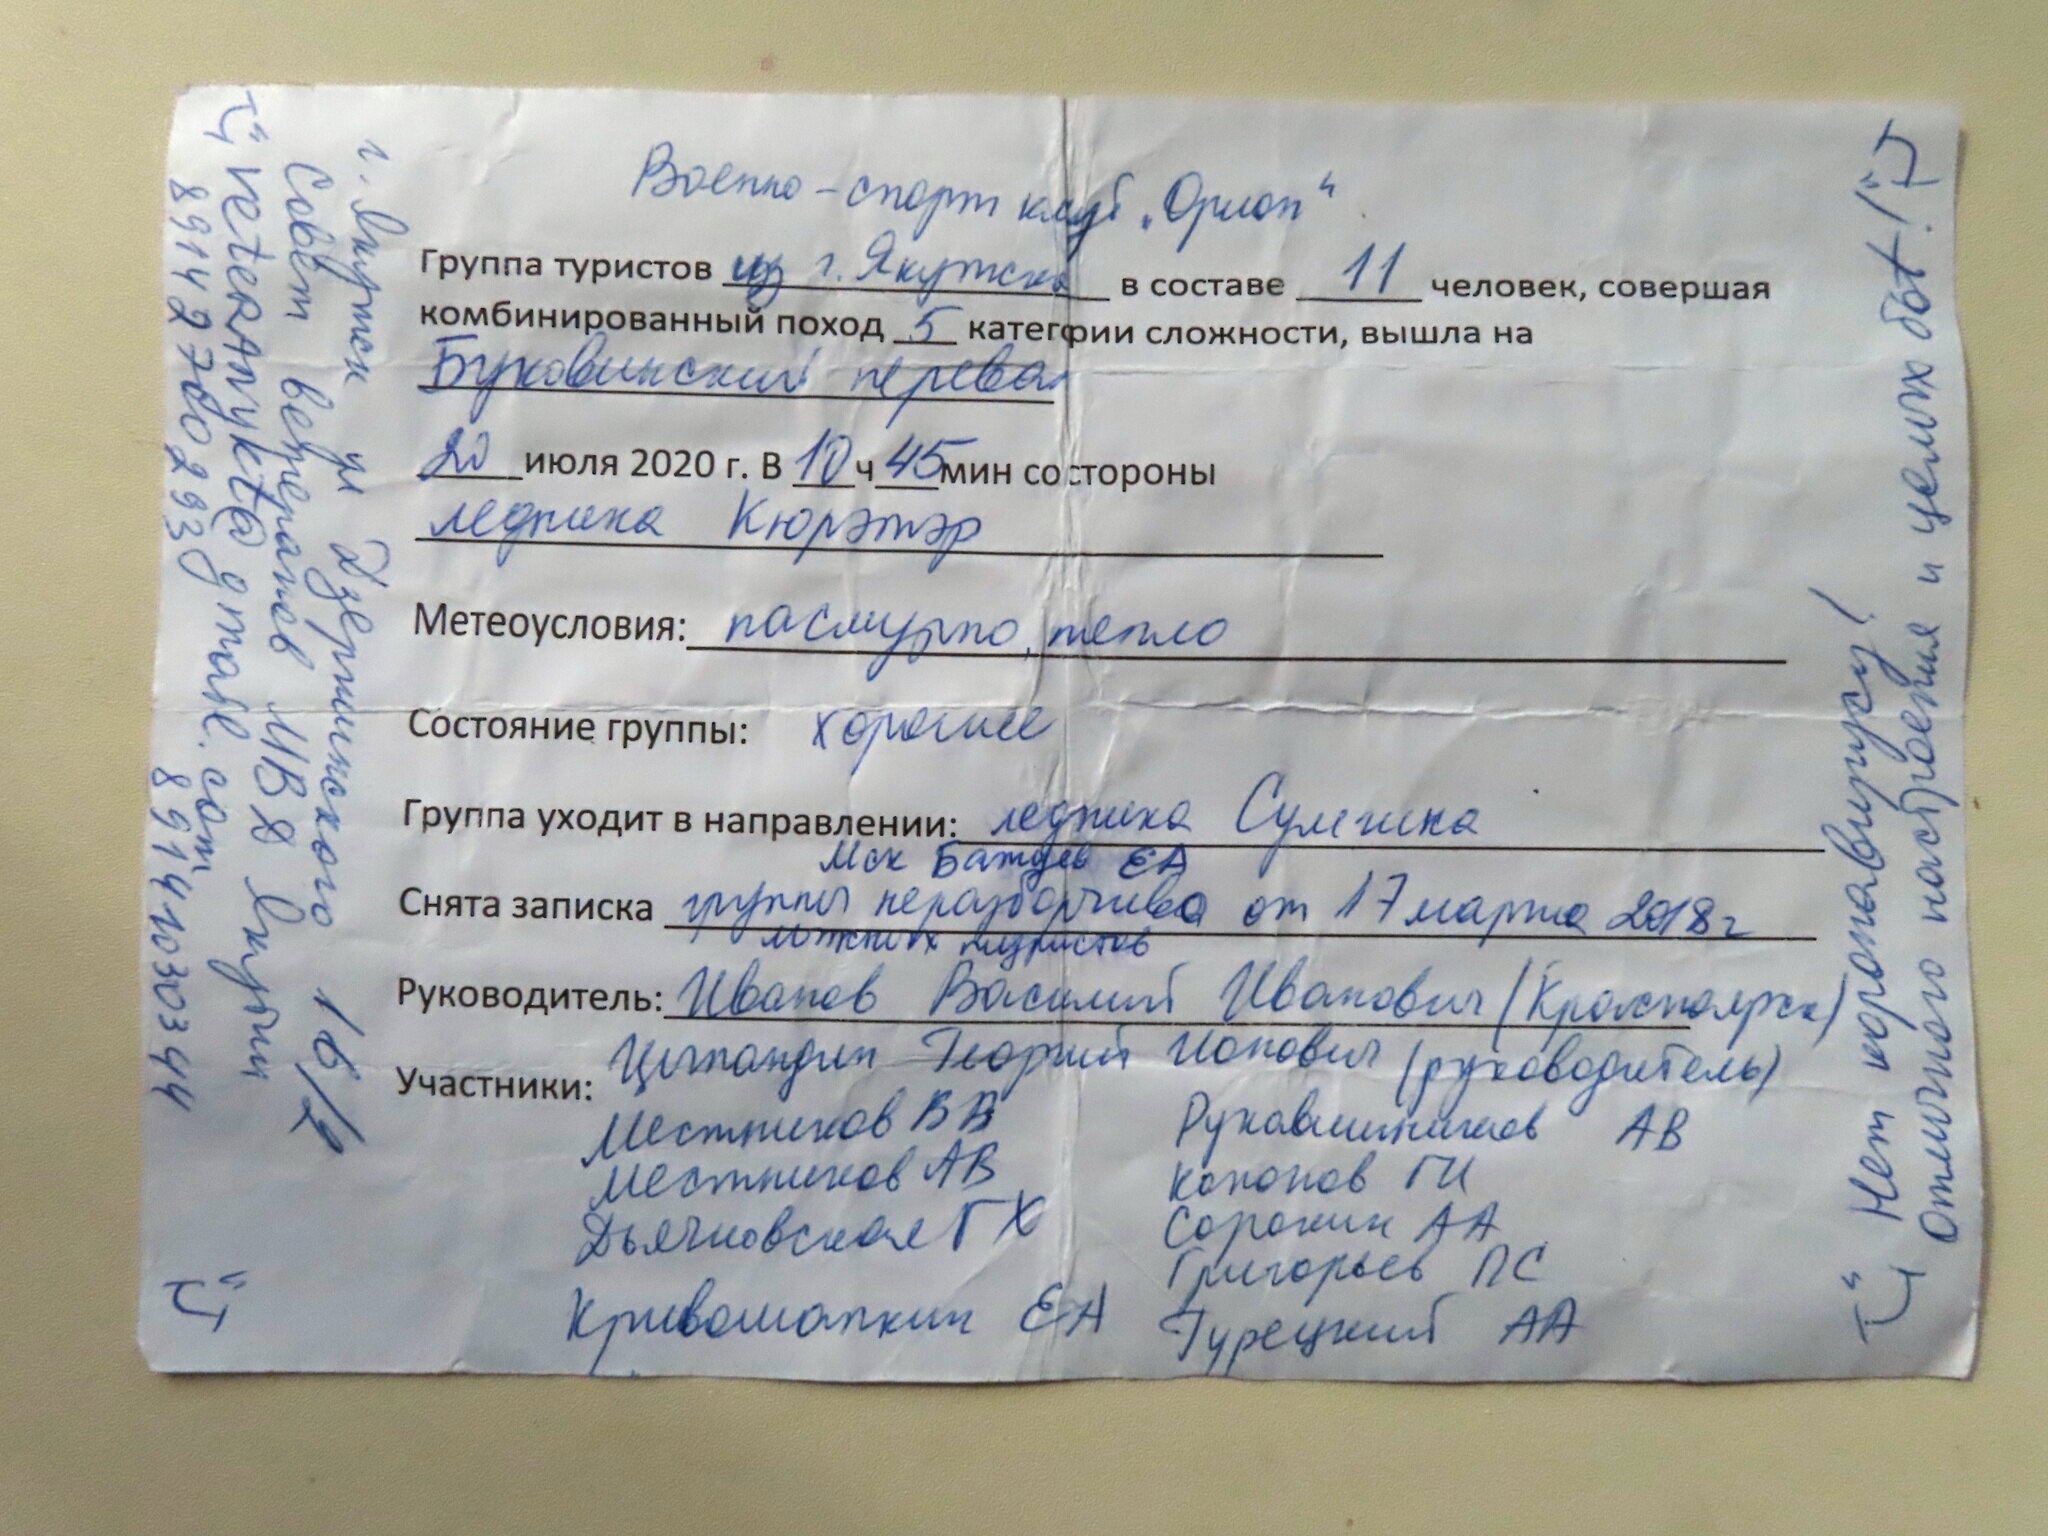 Военно-спорт клуб „Орион“
Группа туристов из г. Якутска в составе 11 человек, совершая
комбинированный поход 5 категории сложности, вышла на
Буковинский перевал
20 июля 2020 г. В 10 ч 45 мин со стороны
ледника Кюрэтэр
Метеоусловия: пасмурно, тепло
Состояние группы: хорошее
Группа уходит в направлении: ледника Сумгина
Мск ЕА
Снята записка группы неразборчиво от 17 марта 2018 г
лыжных туристов
Руководитель: Иванов Василий Иванович (Красноярск)
Участники: Цыпандин Георгий Ионович (руководитель)
Местников ВВ
Местников АВ
Дьячковская ГХ
Кривошапкин ЕА
Рукавишников АВ
Кононов ГИ
Сорокин АА
Григорьев ПС
Турецкий АА
г. Якутск ул Дзержинского 16/2
Совет ветеранов МВД Якутии
veteranykt@gmail.com
89142702930
89141030344
Нет коронавирусу!
Отличного настроения и целых бот!